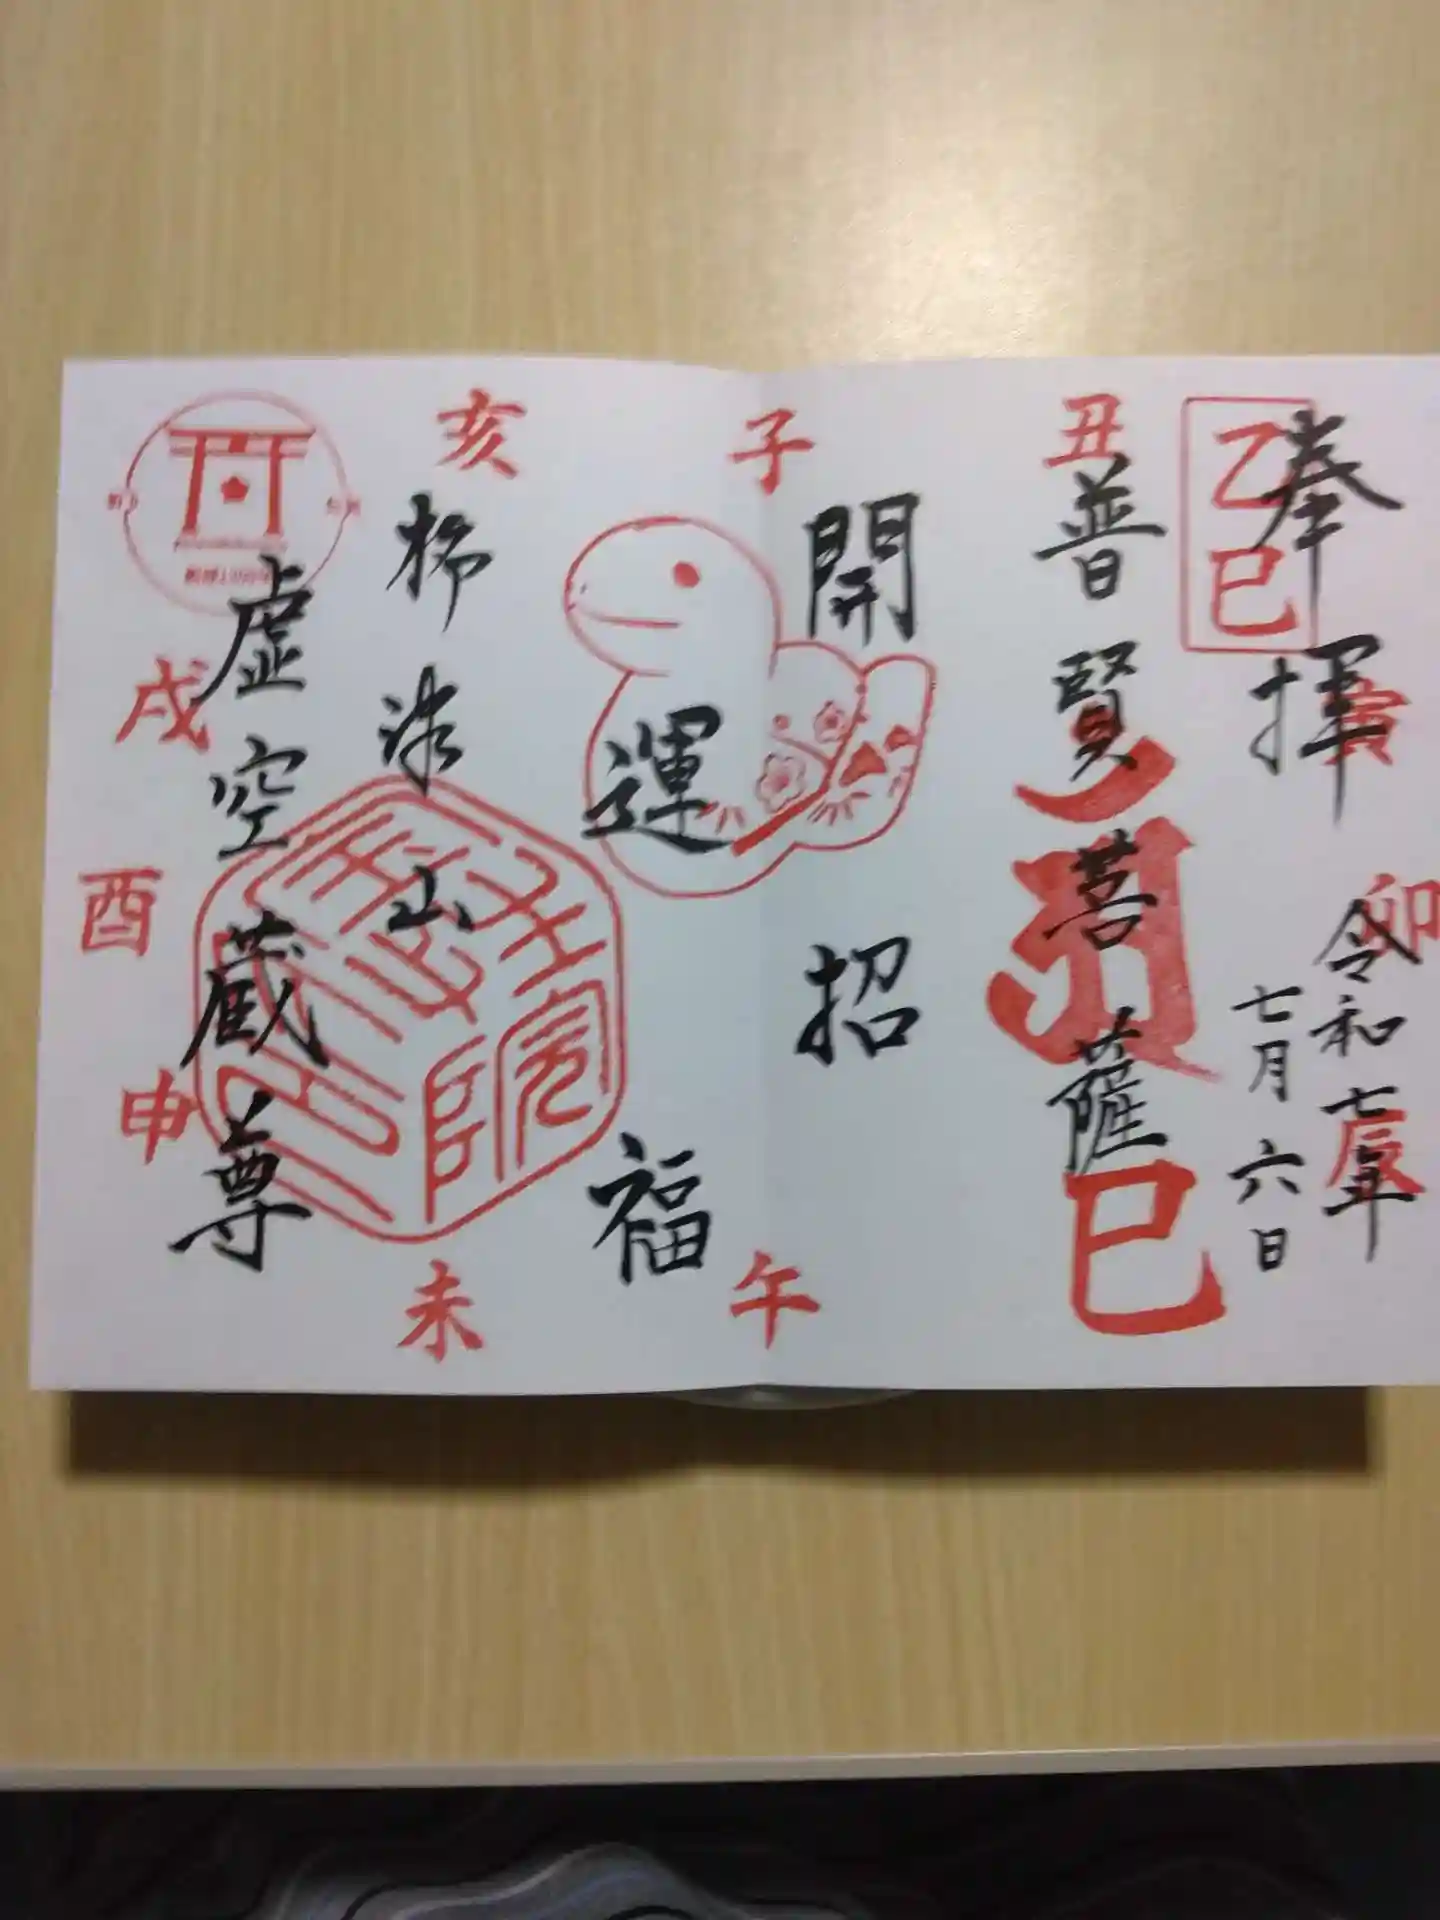 奉拝
乙巳
令和七年
七月六日
普賢菩薩
開運招福
山
虚空蔵尊
子
丑
寅
卯
辰
巳
午
未
申
酉
戌
亥